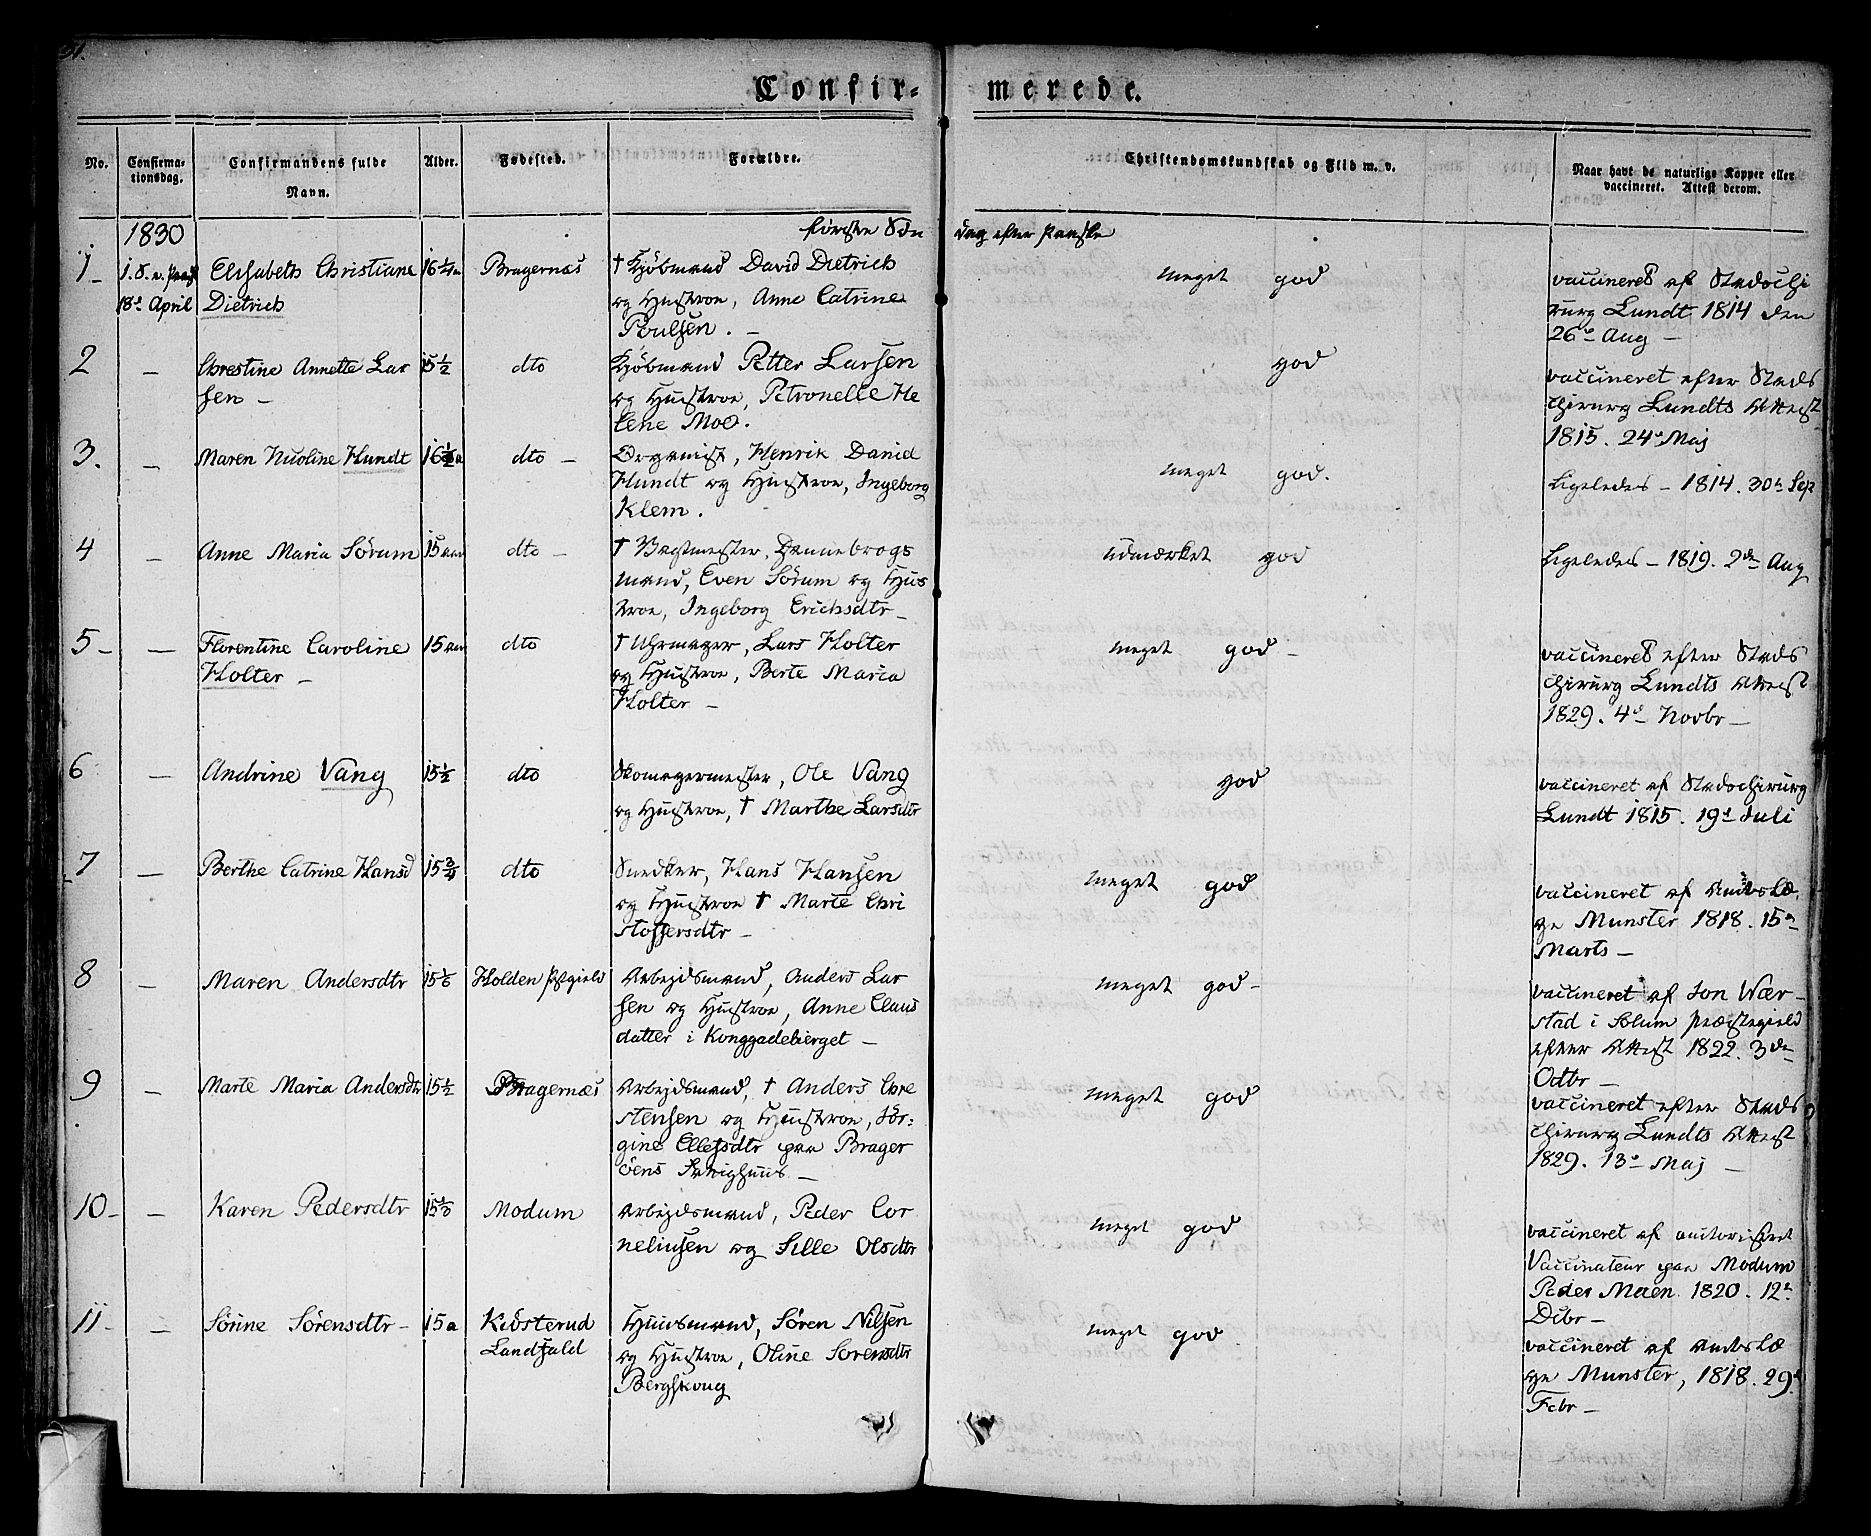 Confir-
merede.
No.
Confirma-
tionsdag.
Confirmandens fulde
Navn.
Alder.
Fødested.
Forældre.
Christendomskundskab og Flid m. v.
Naar havt de naturlige Kopper eller
vaccineret. Attest derom.
1830
første Søn
dag efter Paaske
1
1. S. e. Paask
18de April
Elisabeth Christiane
Dietrich
16
Bragernæs
† Kjøbmand David Dietrich
og Hustroe, Anne Catrine
Poulsen.
meget god
vaccineret af Stadschi
rurg Lundt 1814 den
26de Aug
2
Chrestine Annette Lar
sen
15 1/2
dto
Kjøbmand Petter Larsen
og Hustroe, Petronelle He
lene Moe.
god
vaccineret efter Stads
chirurg Lundts Attest
1815. 24de Maj
3.
Maren Nicoline Hundt
16
dto
Organist, Henrik David
Hundt og Hustroe, Ingeborg
Klem.
meget god.
Ligeledes 1814. 30te Sep
4
Anne Maria Sørum
15 aar
dto
† Vagtmester, Dannebrogs
mand, Even Sørum og Hus
troe, Ingeborg Erichsdtr
udmærket god
Ligeledes 1819. 2den Aug
5
Florentine Caroline
Holter
15 aar
dto
† Uhrmager, Lars Holter
og Hustroe, Berte Maria
Holter
meget god
vaccineret efter Stads
chirurg Lundts Attest
1829. 4de Novbr
6
Andrine Vang
15 1/2
dto
Skomagermester, Ole Vang
og Hustroe, † Marthe Larsdtr
god
vaccineret af Stadschirurg
Lundt 1815. 19de Juli
7
Berthe Catrine Hansd
15 3/4
dto
Snedker, Hans Hansen
og Hustroe † Marte Chri
stoffersdtr
meget god
vaccineret af Amtslæ
ge Munster 1818. 15de
Marts
8
Maren Andersdtr
15
Holden Pstgield
Arbejdsmand, Anders Lar
sen og Hustroe, Anne Claus
datter i Konggadebierget
meget god
vaccineret af Jon Wær
stad i Solum Præstegield
efter Attest 1822. 3de
Octbr
9
Marte Maria Andersdtr
15 1/2
Bragernæs
Arbejdsmand, † Anders Chre
stensen og Hustroe, Jør-
gine Ellefsdtr paa Brager
öens Fattighuus
meget god
vaccineret efter Stads
chirurg Lundts Attest
1829. 13de Maj
10
Karen Pedersdtr
15
Modum
Arbejdsmand, Peder Cor
neliusen og Sille Olsdtr
meget god
vaccineret af autoriseret
Vaccinateur paa Modum
Peder Moen 1820. 12te
Dcbr
11
Sörine Sörensdtr
15 a
Kiösterud
Landfald
Huusmand, Sören Nilsen
og Hustroe, Oline Sorensdtr
Bergskoug
meget god
vaccineret af Amtslæ
ge Munster, 1818. 29de
Febr